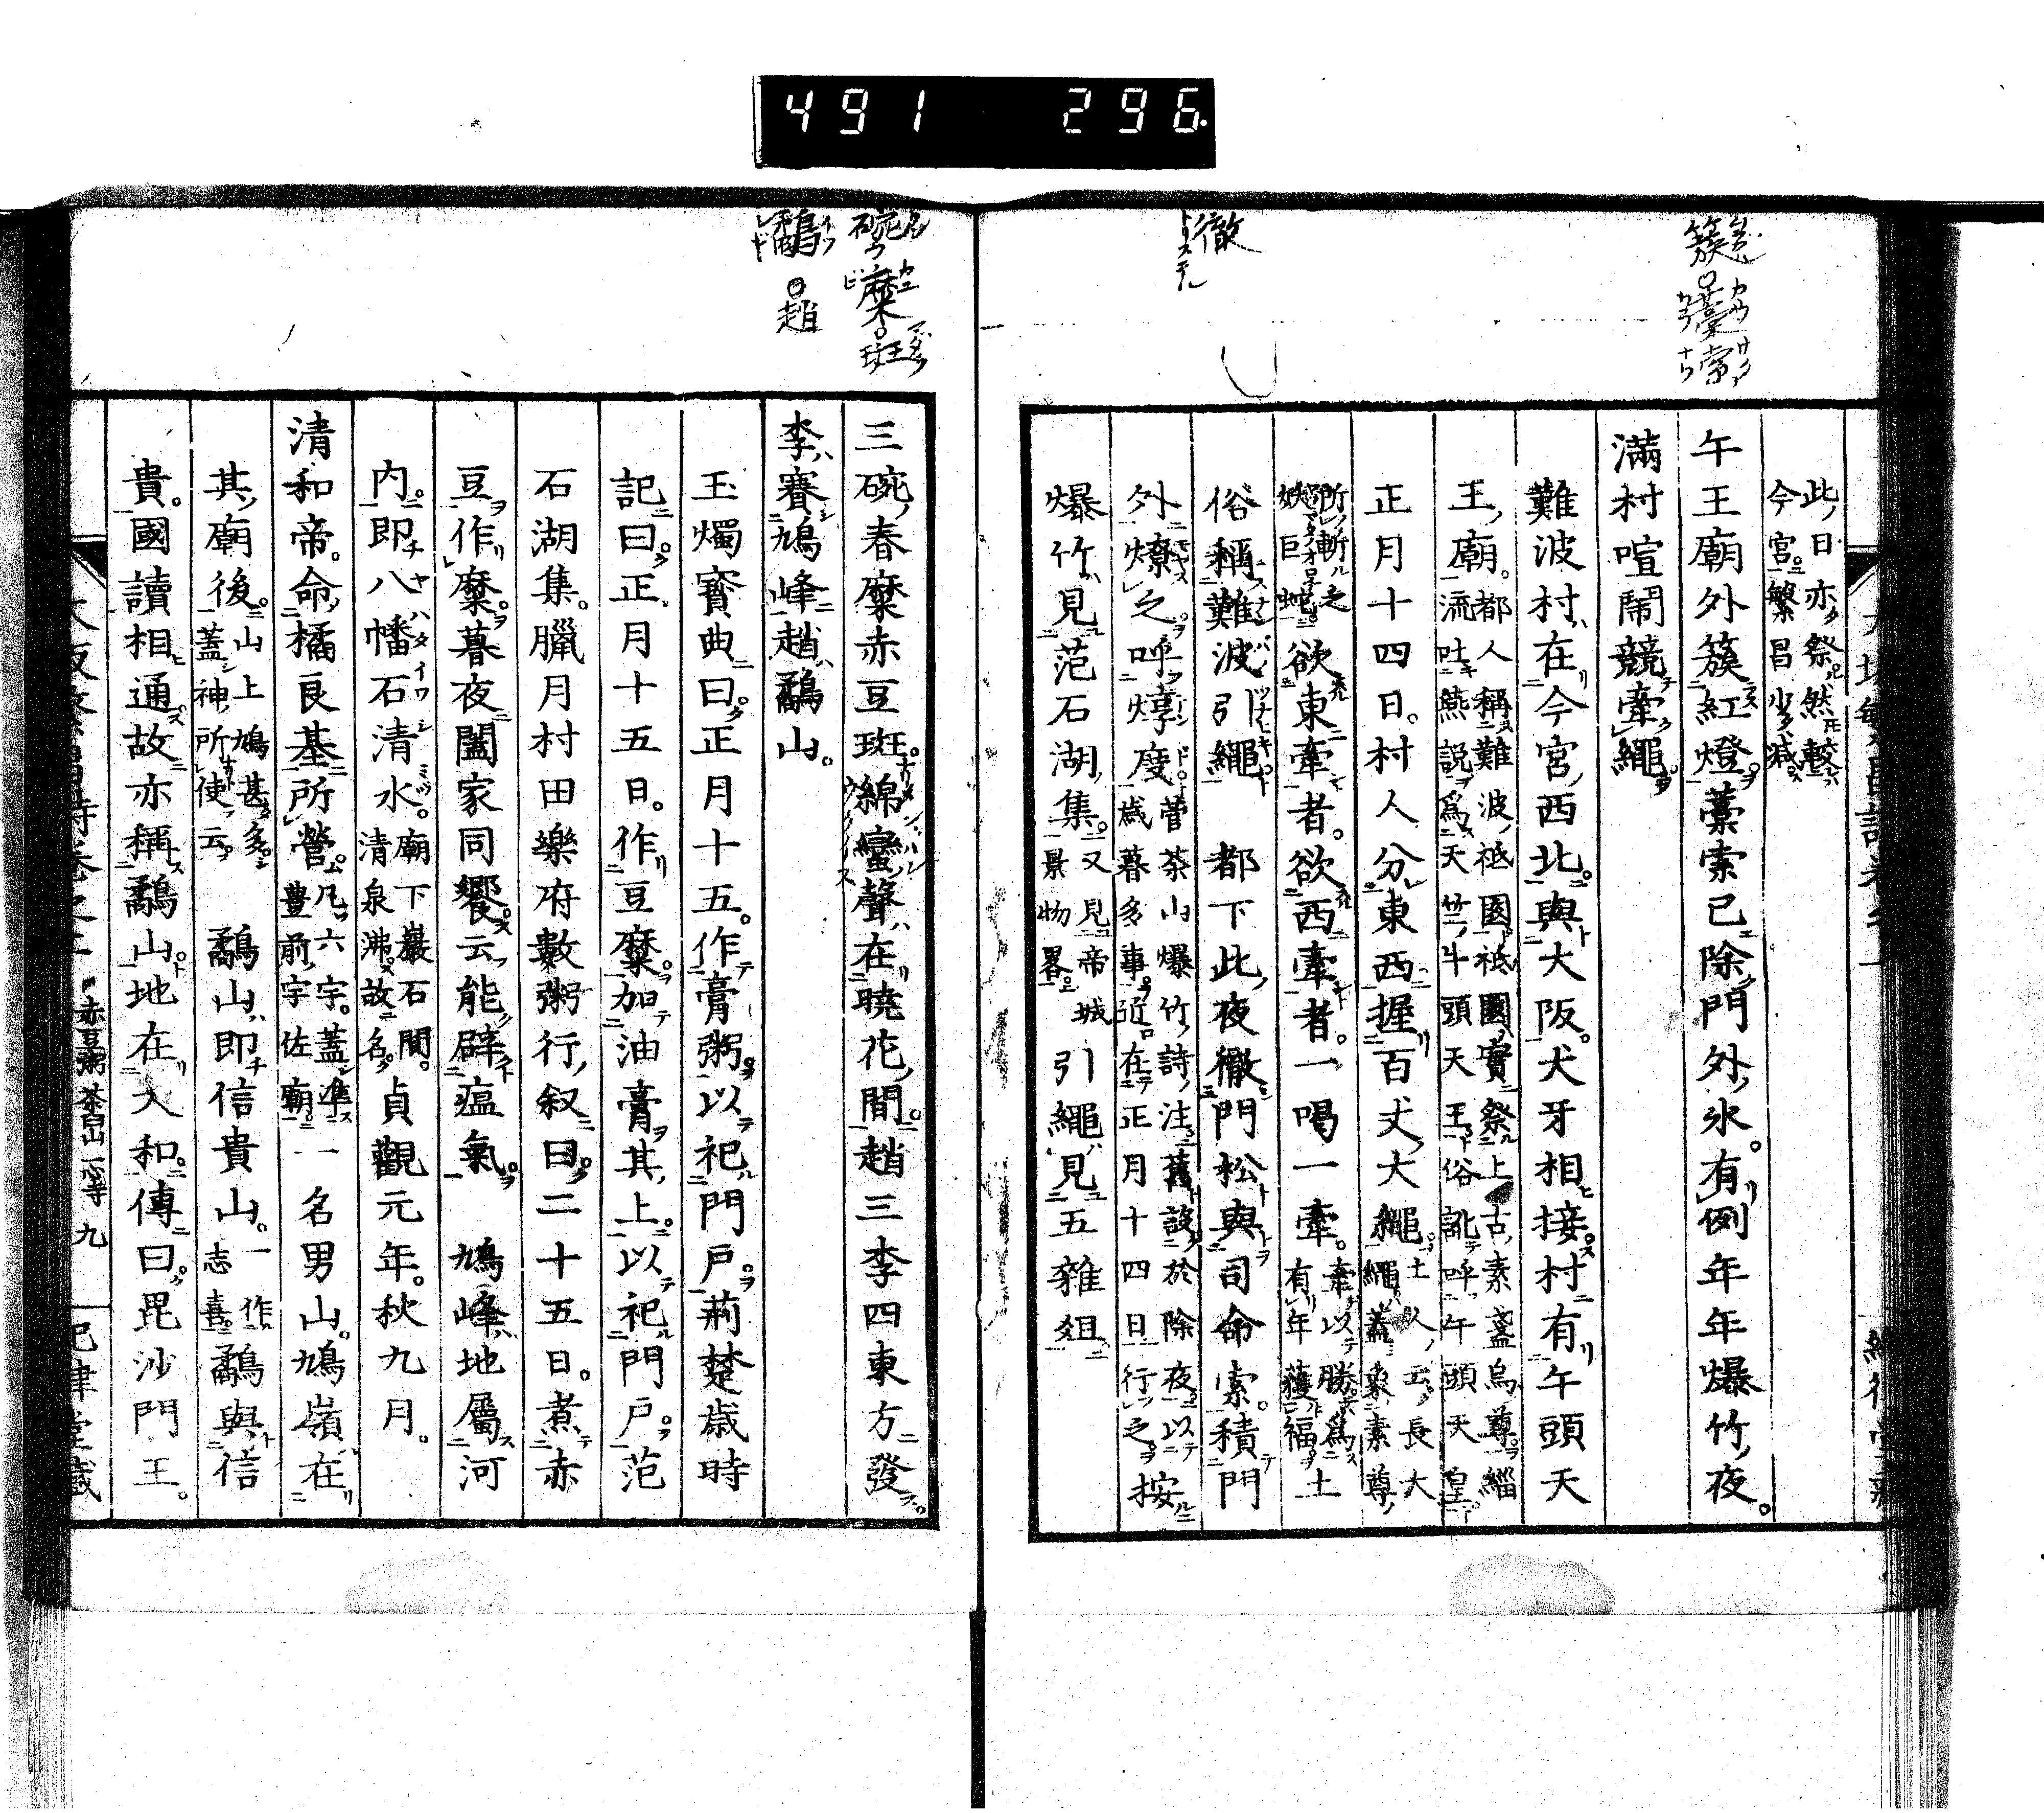 491 296
簇 藁 索
徹
此日亦祭然較
今宮繁昌少減
午王廟外簇紅燈藁索已除門外氷有例年年爆竹夜
滿村喧鬧競牽繩
難波村在今宮西北與大阪犬牙相接村有午頭天
王廟都人稱難波祗園祗園實祭上古素盞烏尊緇
流吐燕說爲天竺牛頭天王俗訛呼午頭天皇
正月十四日村人分東西握百丈大繩土人云長大
繩蓋象素尊
所斬之
妖巨蛇欲東牽者欲西牽者一喝一牽牽以勝爲
有年獲福土
俗稱難波引繩 都下此夜徹門松與司命索積門
外燎之呼爆度菅茶山爆竹詩注舊設於除夜以
歲暮多事近在正月十四日行之按
爆竹見范石湖集又見帝城
景物略引繩見五雜俎
碗 糜 斑
鷸 趙
三碗春糜赤豆斑綿蠻聲在曉花間趙三李四東方發
李賽鳩峰趙鷸山
玉燭寶典曰正月十五作膏粥以祀門戶荊楚歲時
記曰正月十五日作豆糜加油膏其上以祀門戶范
石湖集臘月村田樂府數粥行叙曰二十五日煮赤
豆作糜暮夜闔家同饗云能辟瘟氣 鳩峰地屬河
内即八幡石清水廟下巖石間
清泉沸故名貞觀元年秋九月
清和帝命橘良基所營凡六字蓋準
豊前宇佐廟一名男山鳩嶺在
其廟後山上鳩甚多
蓋神所使云 鷸山即信貴山一作
志喜鷸與信
貴國讀相通故亦稱鷸山地在大和傳曰毘沙門王
赤豆粥 茶臼山 一心寺 九